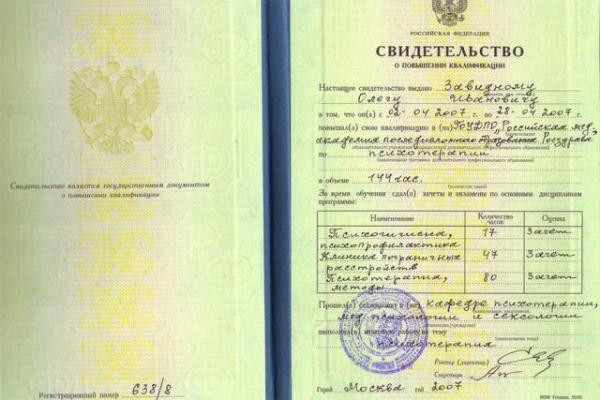 Свидетельство является государственным документом
о повышении квалификации
Регистрационный номер 638/8
РОССИЙСКАЯ ФЕДЕРАЦИЯ
СВИДЕТЕЛЬСТВО
О ПОВЫШЕНИИ КВАЛИФИКАЦИИ
Настоящее свидетельство выдано Завидному
Олегу Ивановичу
в том, что он(а) с 02.04.2007 г. по 28.04.2007 г.
повысил(а) свою квалификацию в (на) ГОУДПО „Российская мед.
академия последипломного образования Росздрава"
по психотерапии
в объеме 144 час.
За время обучения сдал(а) зачеты и экзамены по основным дисциплинам
программы:
Наименование Количество часов Оценка
Психогигиена, 17 Зачет
психопрофилактика
Клиника пограничных 47 Зачет
расстройств
Психотерапия, 80 Зачет
методы
Прошел(а) стажировку в (на) кафедре психотерапии,
мед. психологии и сексологии
выполнил(а) итоговую работу на тему
психотерапия
Ректор (директор)
Секретарь
Город Москва год 2007